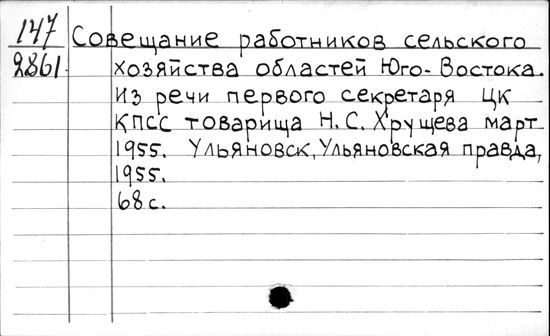 147
2861
Совещание работников сельского
хозяйства областей Юго-Востока.
Из речи первого секретаря ЦК
КПСС товарища Н.С. Хрущева март
1955. Ульяновск, Ульяновская правда,
1955.
68 с.